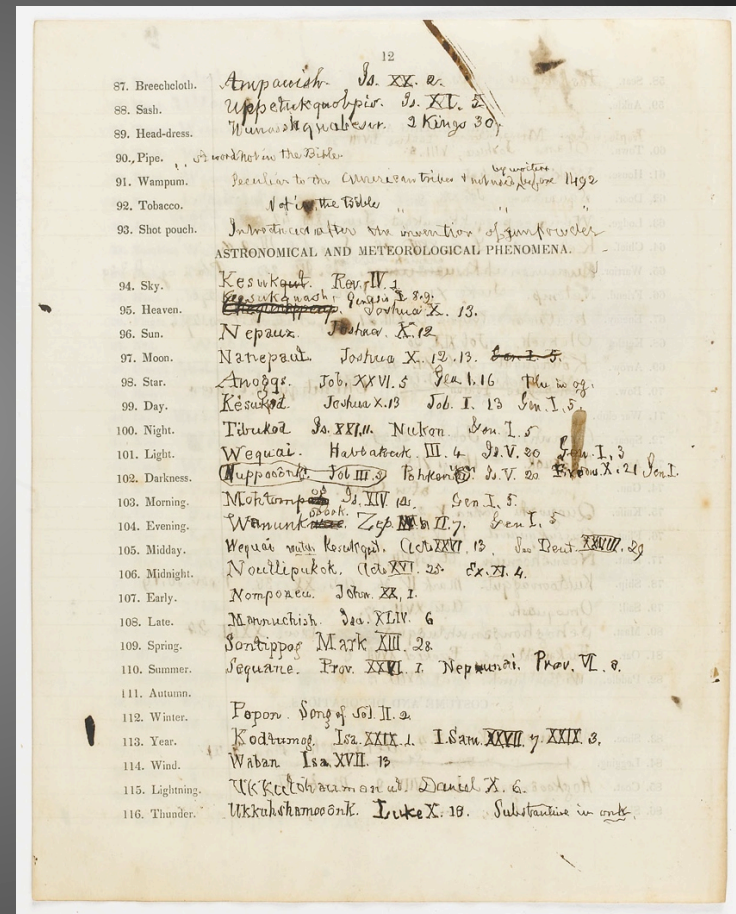 12
87. Breechcloth. Ampauish. Is. XX. 2.
88. Sash. Uppetukquobpis. Is. XI. 5
89. Head-dress. 2 Kings 30,
90. Pipe. word not in the Bible
91. Wampum. Peculiar to the American tribes & not used by writers before 1492
92. Tobacco. Not in the Bible " "
93. Shot pouch. Introduced after the invention of gunpowder
ASTRONOMICAL AND METEOROLOGICAL PHENOMENA.
94. Sky. Kesukqut. Rev. IV. 1
Keesukquash, Genesis I. 8.9.
95. Heaven. Joshua X. 13.
96. Sun. Nepauz. Joshua. X. 12
97. Moon. Nanepaut. Joshua X. 12. 13. Gen I. 5.
98. Star. Anoggs. Job. XXVI. 5 Gen I. 16 Plu in og.
99. Day. Kesukod. Joshua X. 13 Job. I. 13 Gen. I. 5.
100. Night. Tibukod Is. XXI. 11. Nukon. Gen. I. 5
101. Light. Wequai. Habbakuk. III. 4 Is. V. 20 Gen. I. 3
102. Darkness. Nuppoọônk. Job III. 5 Is. V. 20 X. 21 Gen I.
103. Morning. Mohtomp og Is. XIV. 12. Gen I. 5.
104. Evening. Wanunk Zep. II. 7. Gen I. 5
105. Midday. Wequai Kesukqut. Acts XXVI. 13. See Deut. XXVIII. 29
106. Midnight. Noutlipukok. Acts XVI. 25. Ex. XI. 4.
107. Early. Nompoaeu. John. XX, 1.
108. Late. Mannuchish. Isa. XLIV. 6
109. Spring. Sontippog Mark XIII. 28.
110. Summer. Sequane. Prov. XXVI. 1. Nepunai. Prov. VI. 8.
111. Autumn.
112. Winter. Popon. Song of Sol. II. 2
113. Year. Kodtumog. Isa. XXIX. 1. I. Sam. XXVII. 7. XXIX. 3.
114. Wind. Waban Isa. XVII. 13
115. Lightning. Daniel X. 6.
116. Thunder. Ukkuhshamooônk. Luke X. 18. Substantive in onk.